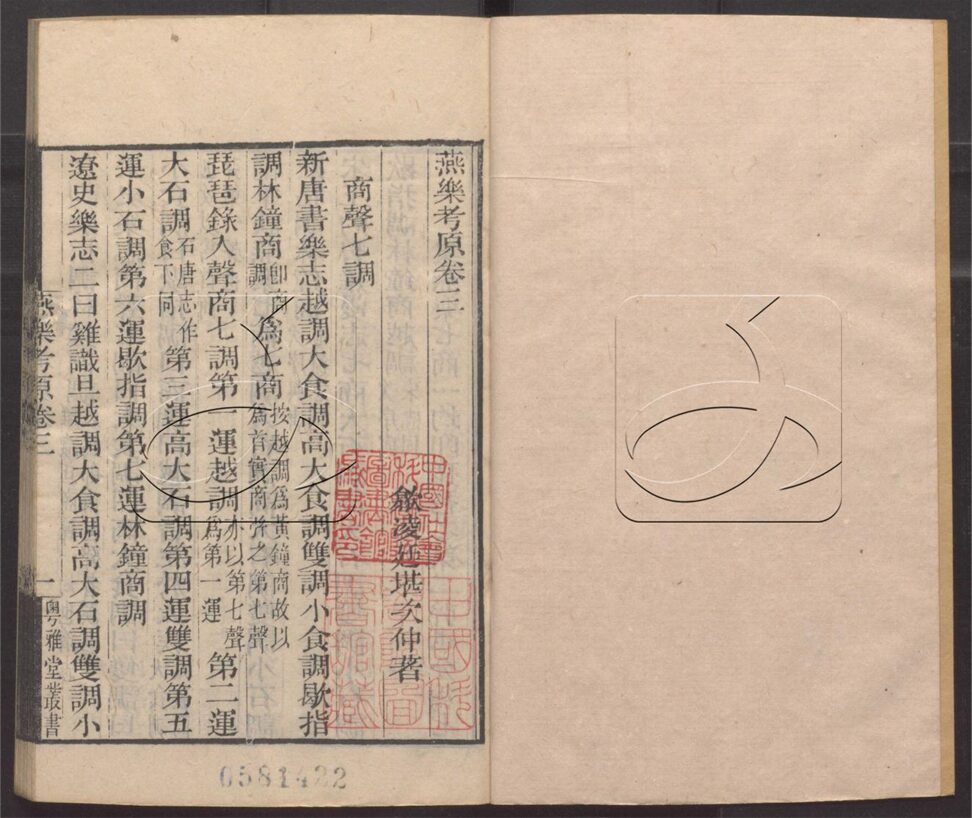 燕樂考原卷三
歙凌廷堪次仲著
商聲七調
新唐書樂志越調大食調高大食調雙調小食調歇指
調林鐘商調卽商調爲七商按越調爲黃鐘商故以爲首實商聲之第七聲
琵琶錄入聲商七調第一運越調亦以第七聲爲第一運第二運
大石調石唐志作食下同第三運高大石調第四運雙調第五
運小石調第六運歇指調第七運林鐘商調
遼史樂志二曰雞識旦越調大食調高大石調雙調小
燕樂考原卷三
一
粵雅堂叢書
0581422